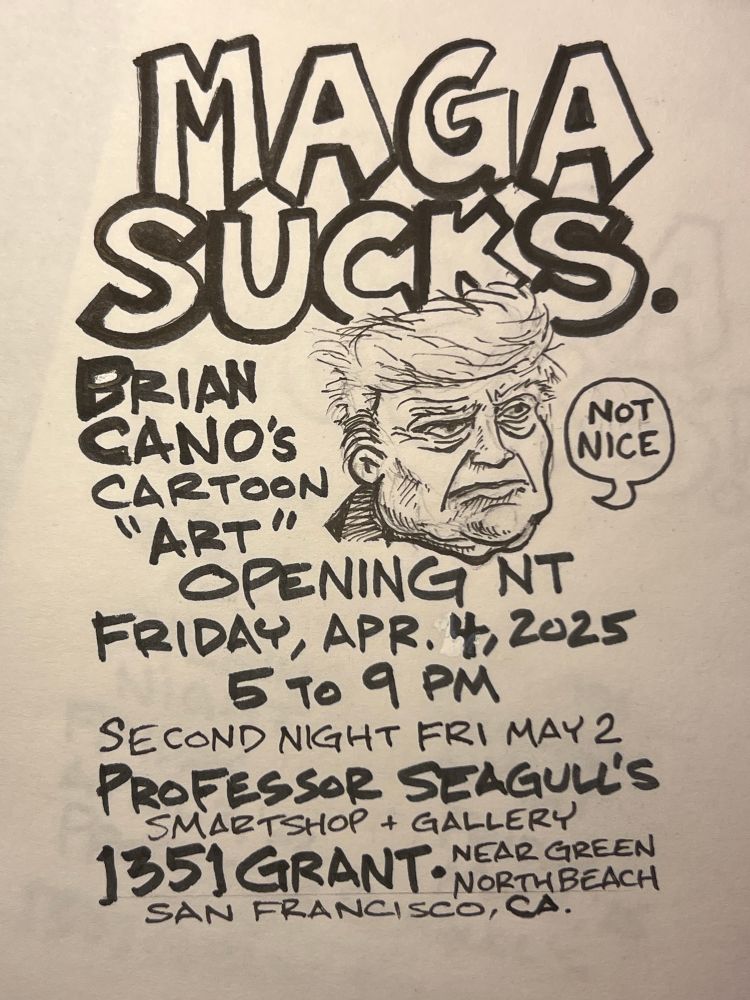 MAGA
SUCKS.
BRIAN
CANO'S
CARTOON
"ART"
NOT
NICE
OPENING NT
FRIDAY, APR. 4, 2025
5 TO 9 PM
SECOND NIGHT FRI MAY 2
PROFESSOR SEAGULL'S
SMARTSHOP + GALLERY
1351 GRANT • NEAR GREEN
NORTH BEACH
SAN FRANCISCO, CA.